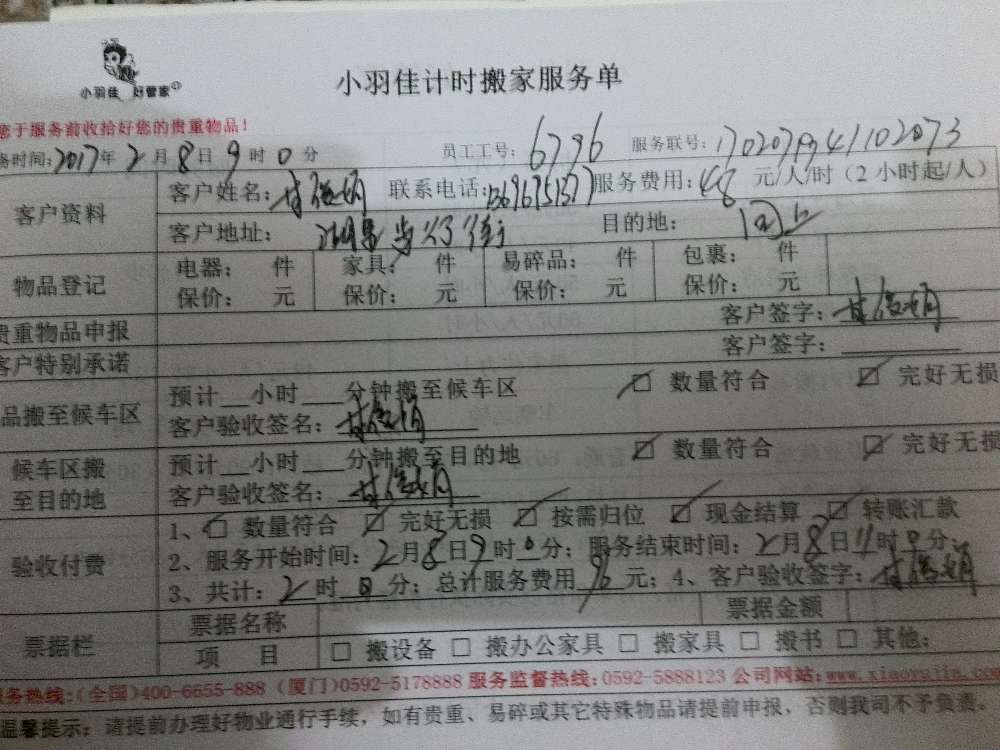 小羽佳 好管家
小羽佳计时搬家服务单
您于服务前收给好您的贵重物品!
务时间:2017年2月8日9时0分 员工工号:6796 服务联号:
客户资料
客户姓名: 联系电话:13696751577 服务费用:48元/人/时(2小时起/人)
客户地址: 步行街 目的地:
物品登记
电器: 件 家具: 件 易碎品: 件 包裹: 件
保价: 元 保价: 元 保价: 元 保价: 元
贵重物品申报 客户签字:
客户特别承诺 客户签字:
品搬至候车区
预计 小时 分钟搬至候车区 数量符合 完好无损
客户验收签名:
候车区搬至目的地
预计 小时 分钟搬至目的地 数量符合 完好无损
客户验收签名:
验收付费
1、 数量符合 完好无损 按需归位 现金结算 转账汇款
2、服务开始时间:2月8日9时0分; 服务结束时间:2月8日11时0分;
3、共计:2时0分; 总计服务费用96元; 4、客户验收签字:
票据栏
票据名称 票据金额
项 目 □ 搬设备 □ 搬办公家具 □ 搬家具 □ 搬书 □ 其他:
服务热线:(全国)400-6655-888 (厦门)0592-5178888 服务监督热线:0592-5888123 公司网站:www.xiaoyujia.com
温馨提示:请提前办理好物业通行手续,如有贵重、易碎或其它特殊物品请提前申报,否则我司不予负责。